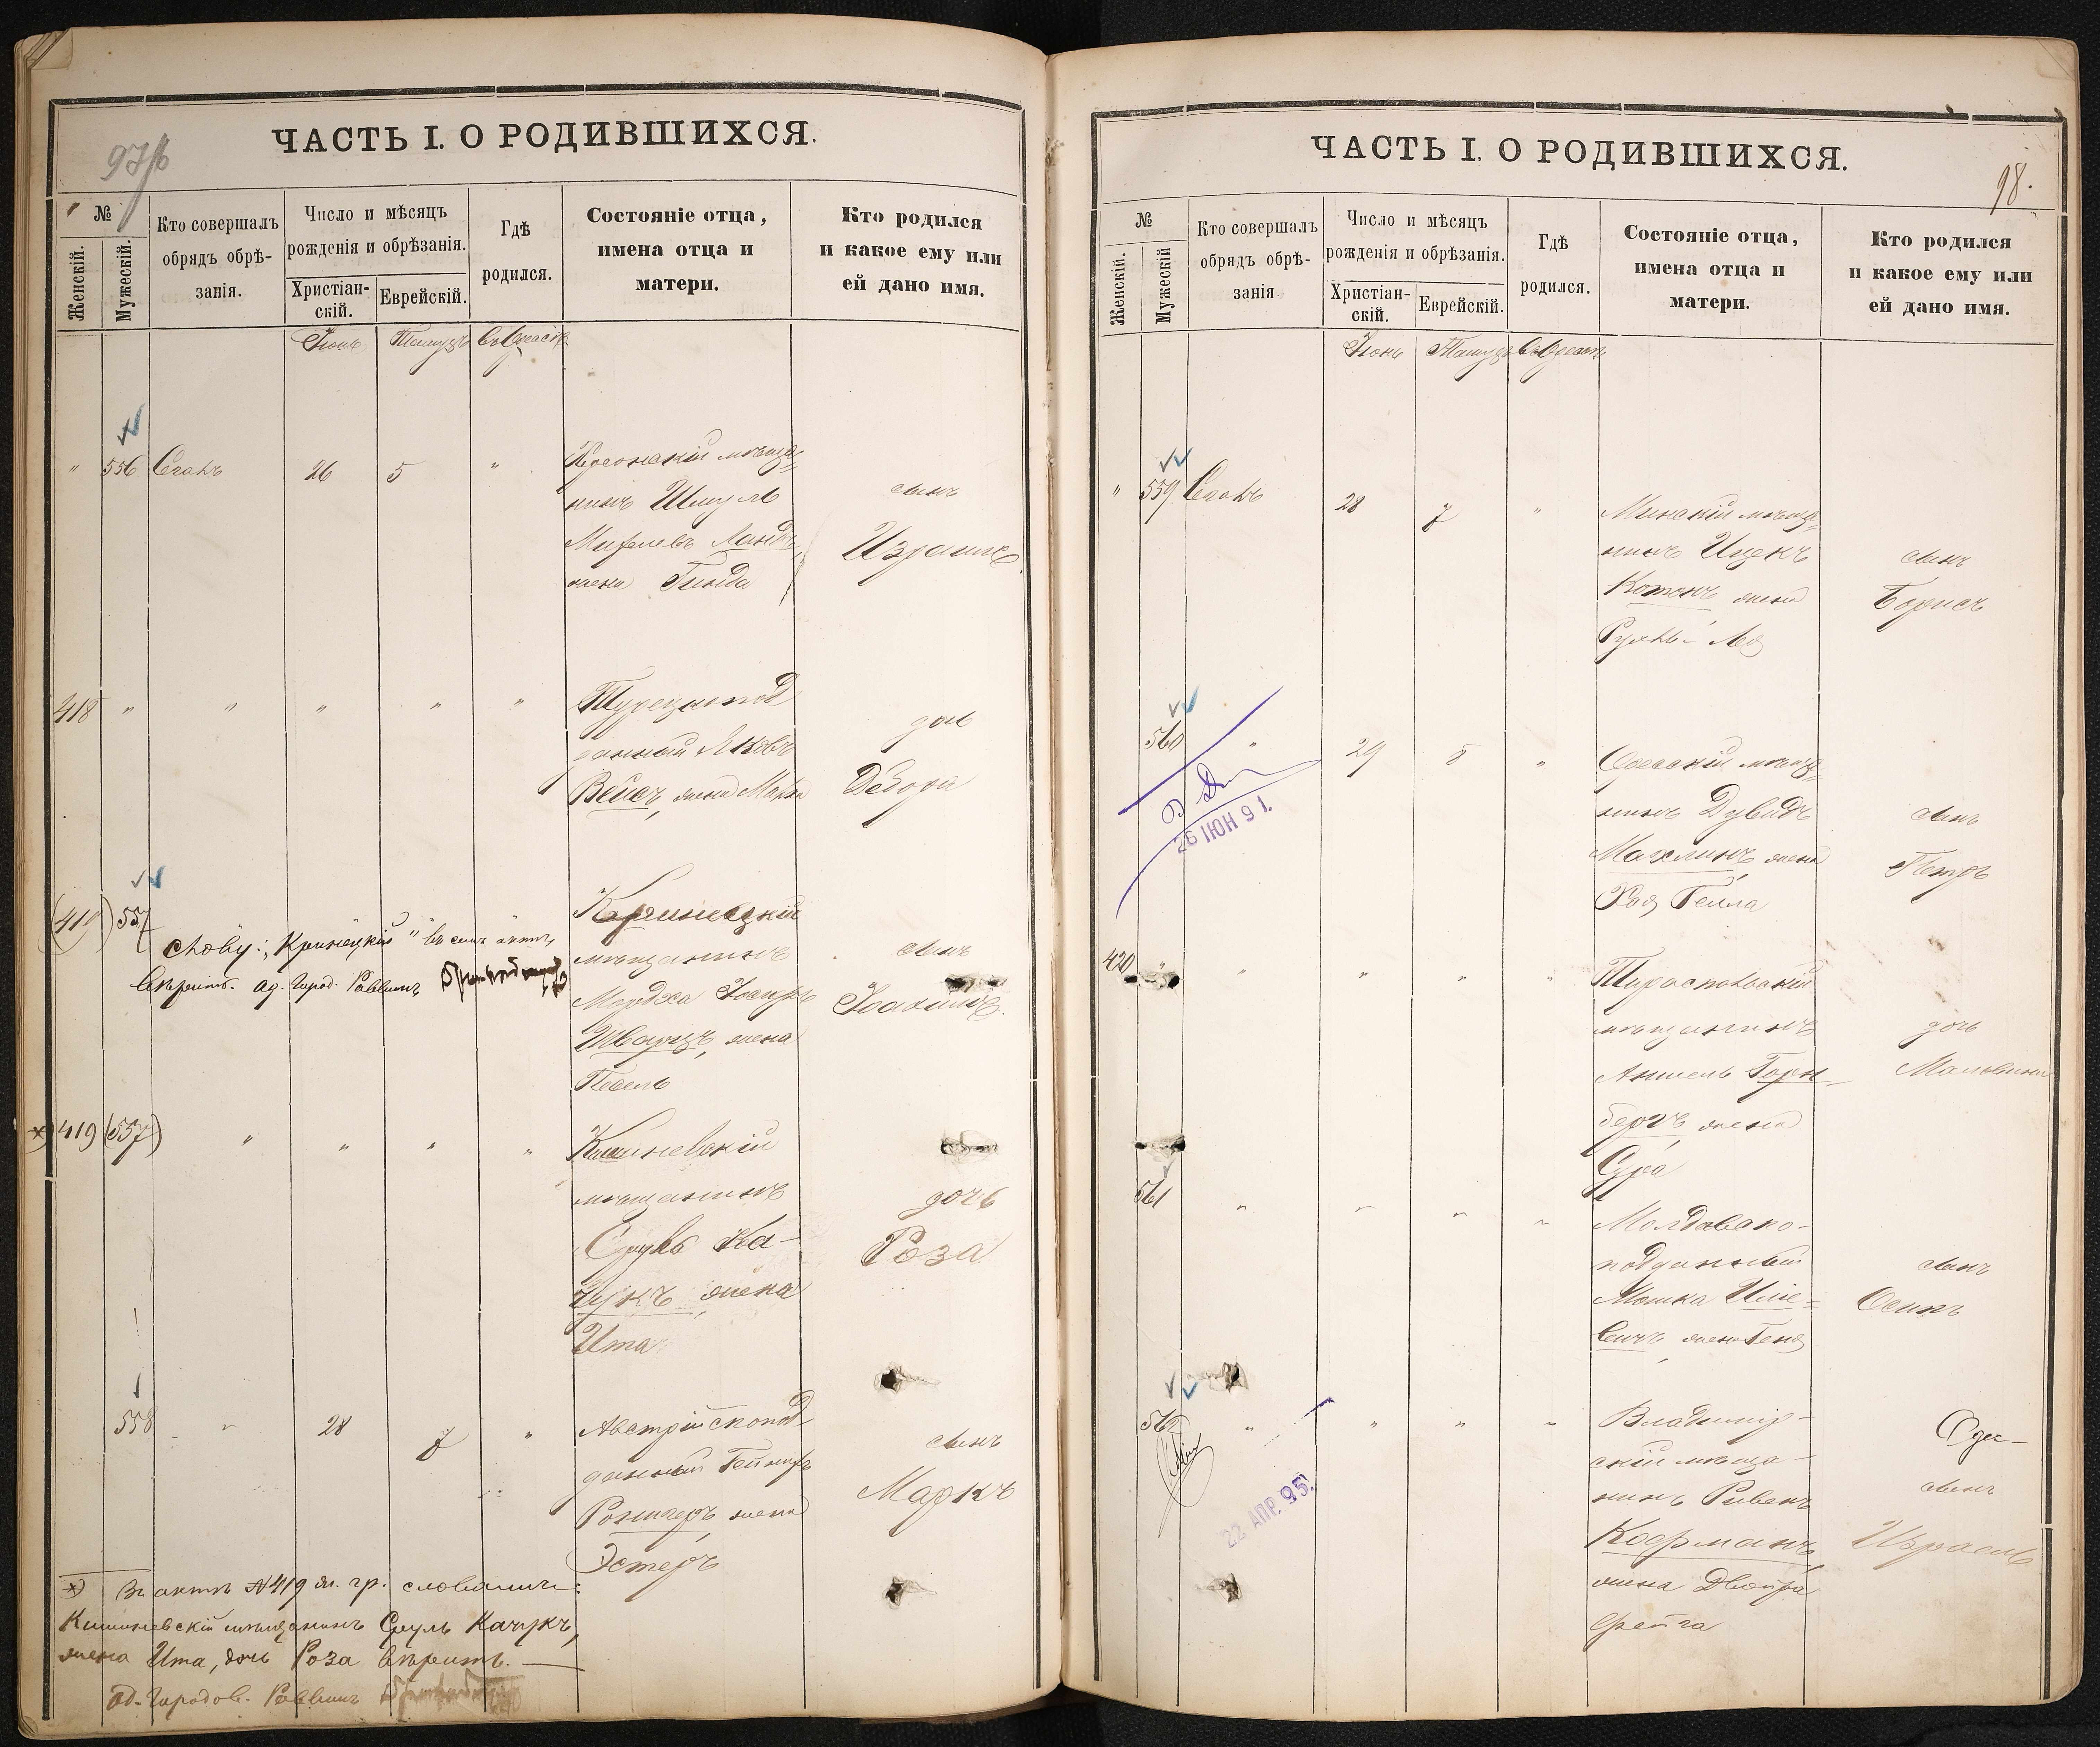 97/б
ЧАСТЬ I. О РОДИВШИХСЯ.
№
Женскій.
Мужескій.
Кто совершалъ
обрядъ обрѣ-
занія.
Число и мѣсяцъ
рожденія и обрѣзанія.
Христіан-
скій.
Еврейскій.
Гдѣ
родился.
Состояніе отца,
имена отца и
матери.
Кто родился
и какое ему или
ей дано имя.
Іюнь Тамузъ Въ Одессѣ
" 556 26 5 "
Херсонскій мѣща=
нинъ Шмуль
жена Гинда
сынъ
Израиль
418 " " " " "
Турецкопод
данный
Вейсъ, жена
дочь
Дебора
(419) 557
Слову: „Кринецкій" въ семъ актѣ
вѣрить. Од. Город. Раввинъ
мѣщанинъ
Мордха Іосифъ
Шварцъ, жена
Песель
сынъ
Іоахимъ.
*) 419 (557) " " " "
Кишиневскій
мѣщанинъ
Сруль Ка-
чукъ, жена
Ита
дочь
Роза
558 " 28 7 "
Австрійскопод-
данный
жена
Эстеръ
сынъ
Маркъ
*) Въ актѣ №419 ж. гр. словамъ:
Кишиневскій мѣщанинъ Сруль Качукъ,
жена Ита, дочь Роза вѣрить. —
Од. Городов. Раввинъ
98.
ЧАСТЬ I. О РОДИВШИХСЯ.
№
Женскій.
Мужескій
Кто совершалъ
обрядъ обрѣ-
занія
Число и мѣсяцъ
рожденія и обрѣзанія.
Христіан-
скій.
Еврейскій.
Гдѣ
родился.
Состояніе отца,
имена отца и
матери.
Кто родился
и какое ему или
ей дано имя.
Іюнь Тамузъ Въ Одессѣ
" 559 28 7 "
Минскій мѣща=
нинъ Ицекъ
жена
сынъ
Борисъ
560 " 29 8 "
26 ІЮН 91.
Одесскій мѣща=
нинъ Дувидъ
Махлинъ, жена
Хая Гейла
сынъ
Петръ
420 " " " " "
Тираспольскій
мѣщанинъ
Аншель Горн-
бергъ, жена
Сура
дочь
Мальвина
561 " " " "
Молдавско-
подданный
Мошка
жена
сынъ
Осипъ
562 " " " "
22 АПР. 95.
Владимір-
скій мѣща-
нинъ Рувенъ
Кофманъ,
жена Двойра
Фейга
Один
сынъ
Израиль